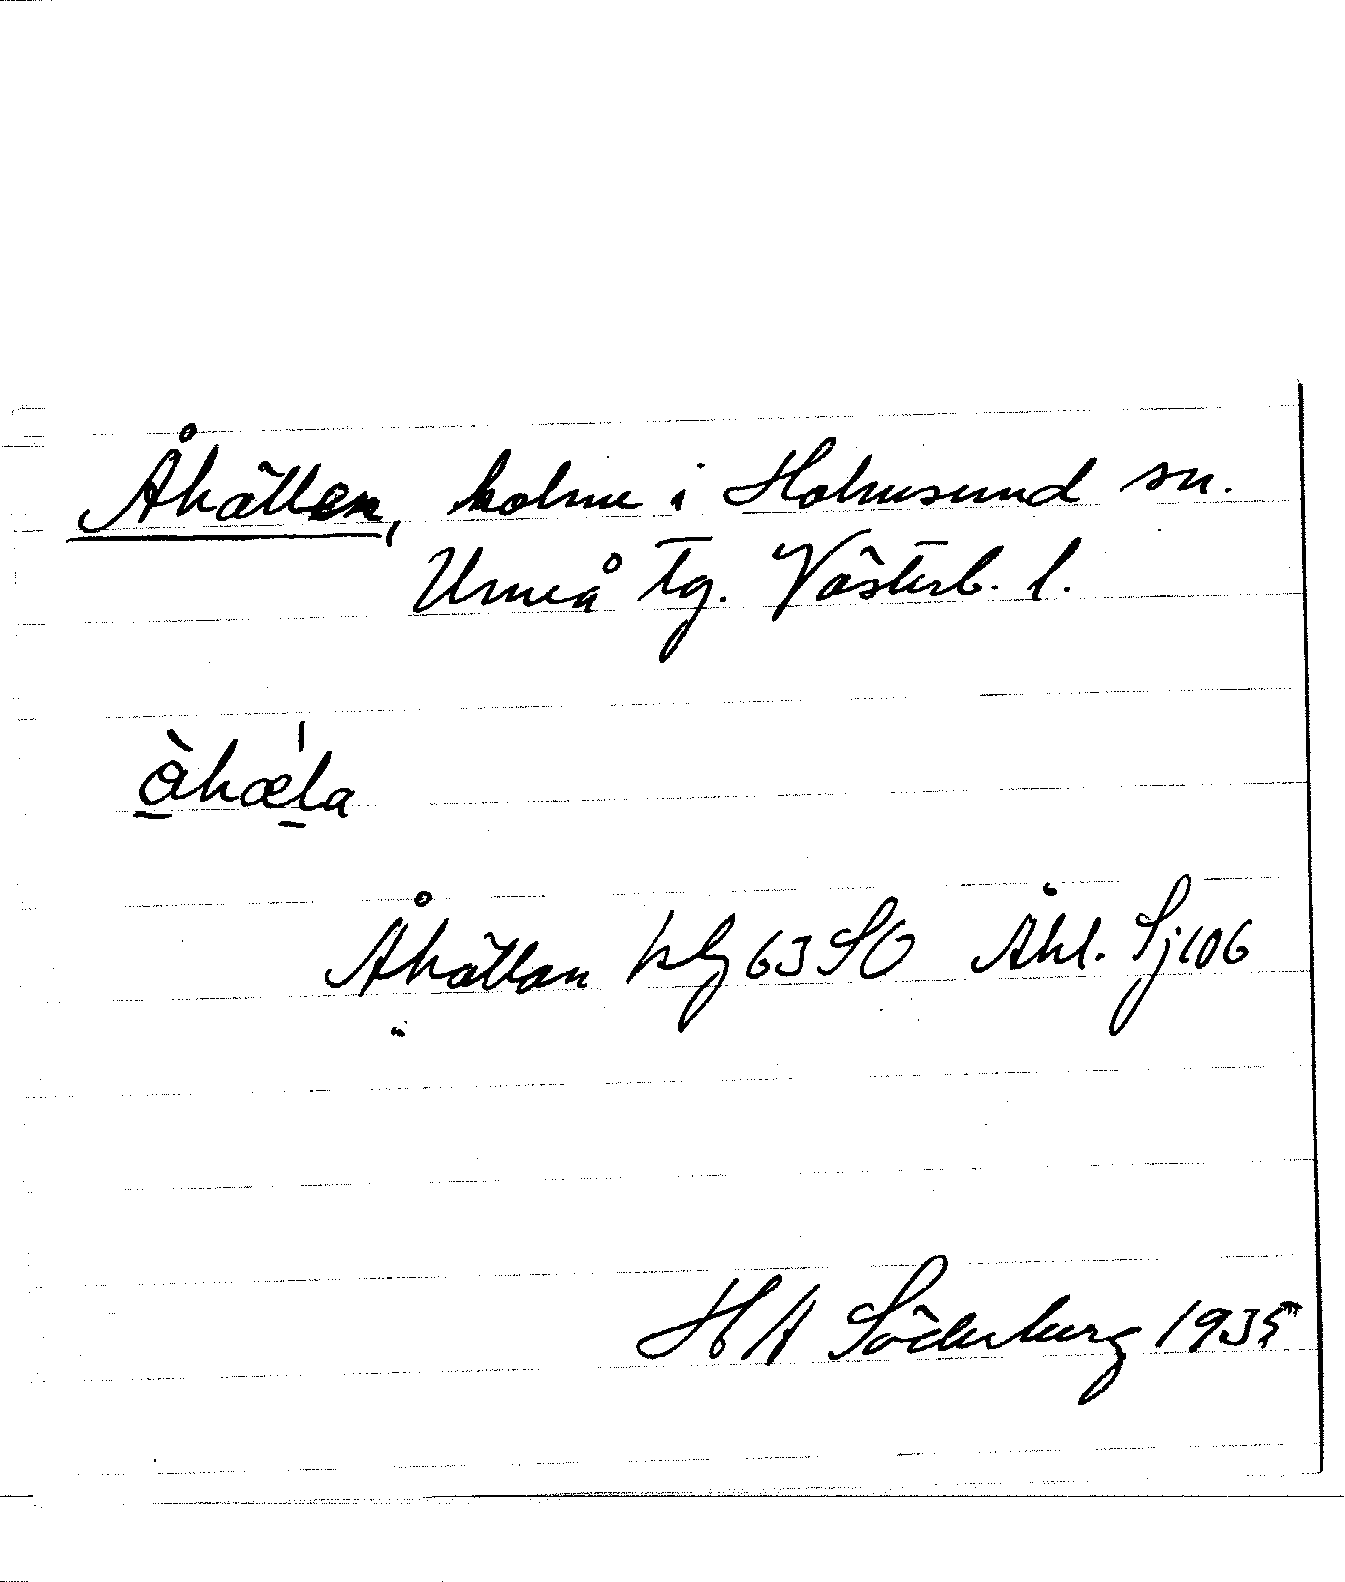 Åhällan, holme i Holmsund sn.
Umeå tg. Västerb. l.
åhæla
Åhällan blg 63 SO Åhl. Sj 106
H A Söderberg 1935